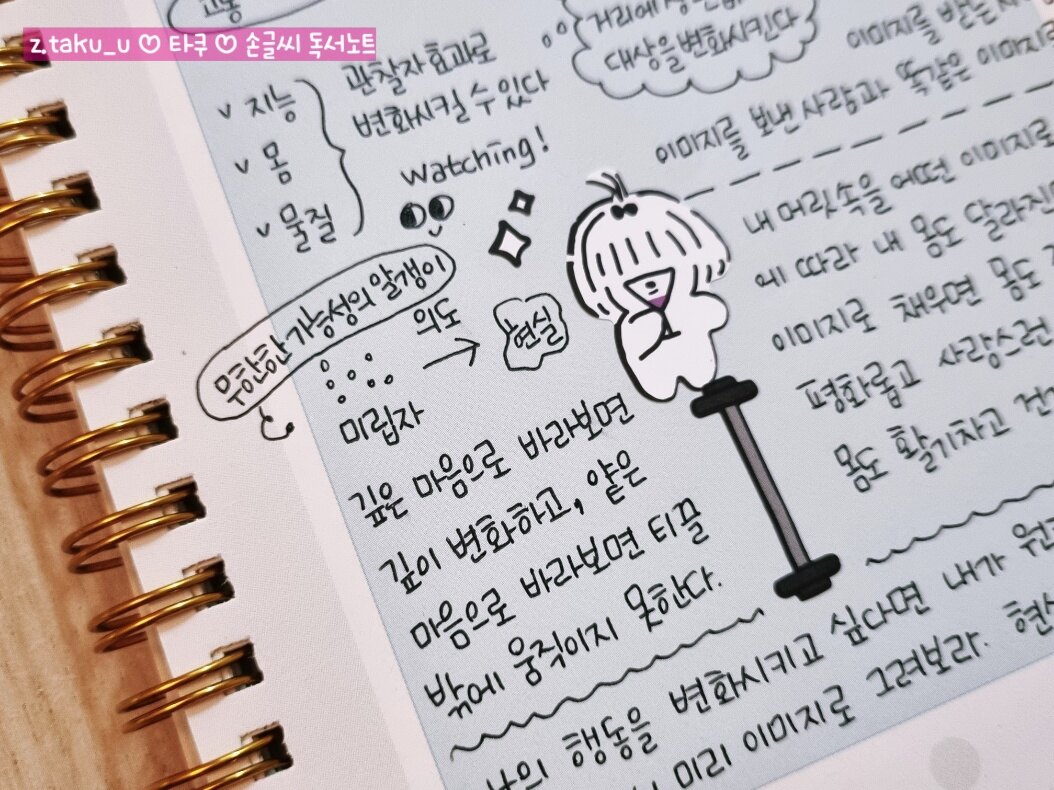 z.taku_u ♡ 타쿠 ♡ 손글씨 독서노트
고통
v 지능
v 몸
v 물질
관찰자효과로
변화시킬 수 있다
watching!
무한한 가능성의 알갱이
미립자
의도
현실
깊은 마음으로 바라보면
깊이 변화하고, 얕은
마음으로 바라보면 티끌
밖에 움직이지 못한다.
거리에
대상을 변화시킨다
이미지를 받는
이미지를 보낸 사람과 똑같은 이미지
내 머릿속을 어떤 이미지로
에 따라 내 몸도 달라진
이미지로 채우면 몸도
평화롭고 사랑스런
몸도 활기차고
행동을 변화시키고 싶다면 내가
미리 이미지로 그려보라.